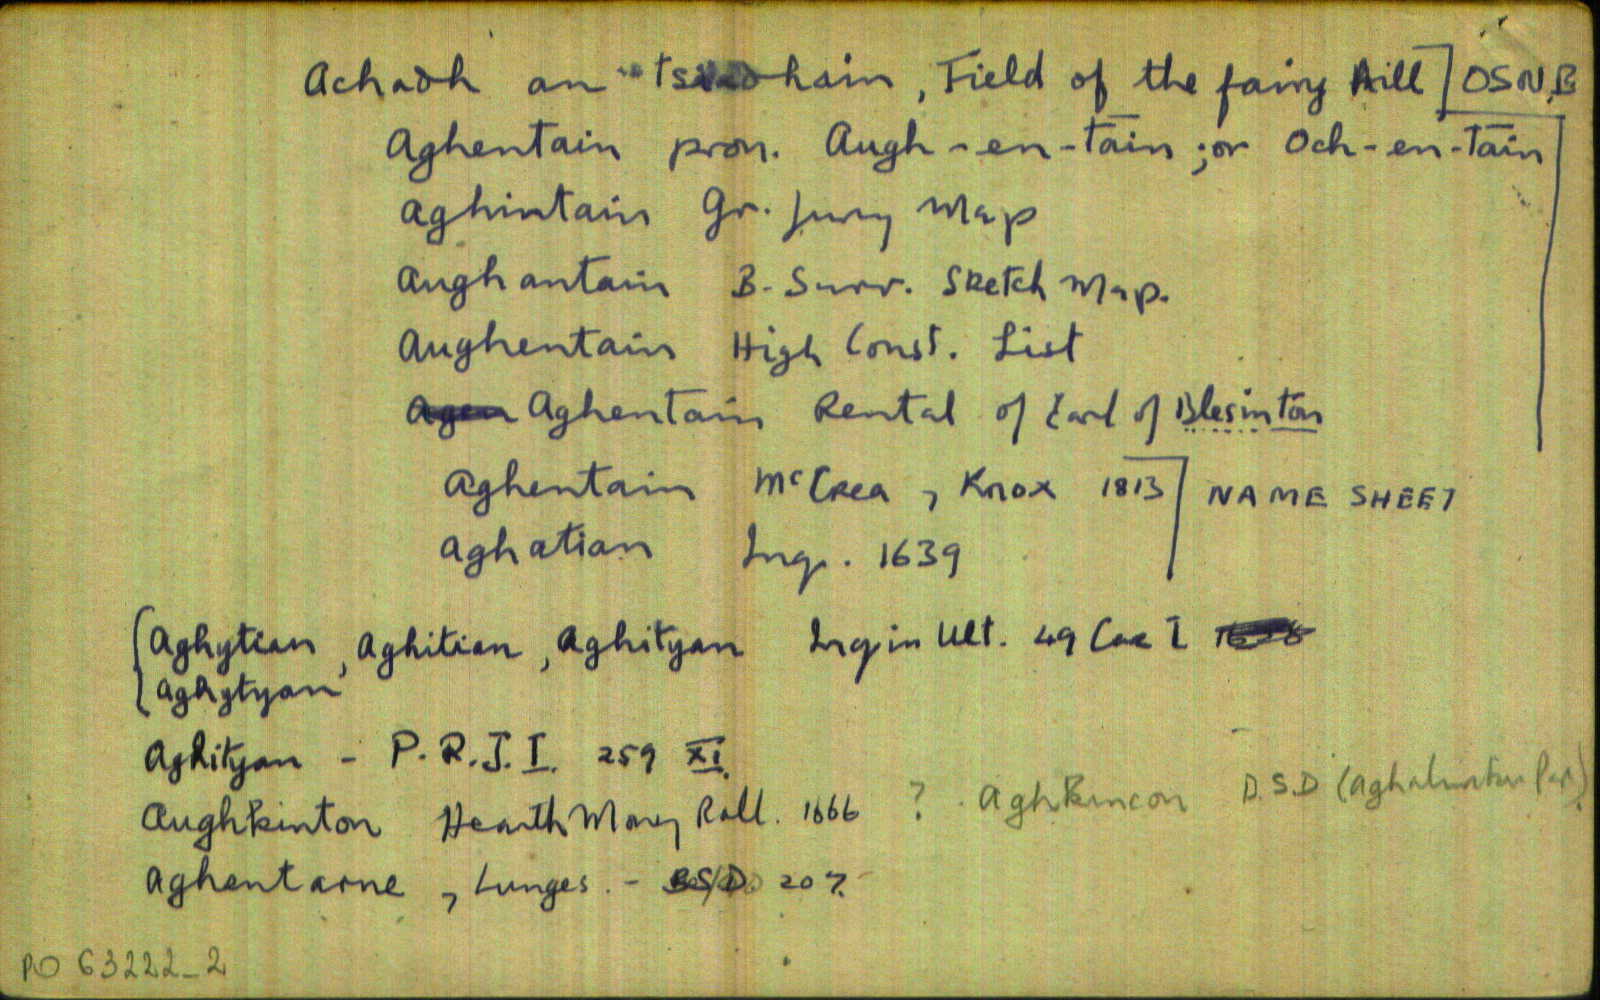 Achadh an tsiadhain, Field of the fairy hill] OSNB
Aghentain pron. Augh-en-tain; or Och-en-tain
Aghintain Gr. Jury Map
Aughantain B. Surv. Sketch Map.
Aughentain High Const. List
Aghentain Rental of Earl of Blesinton
Aghentain McCrea, Knox 1813] NAME SHEET
Aghatian Inq. 1639
Aghytian, Aghitian, Aghityan Inq in Ult. 49 Car I
Aghytyan
Aghityan - P.R.J.I. 259 XI.
Aughkinton Hearth Money Roll. 1666 ? Aghkincon D.S.D
Aghentarne, Lunges. - BSD. 207.
PO 63222_2